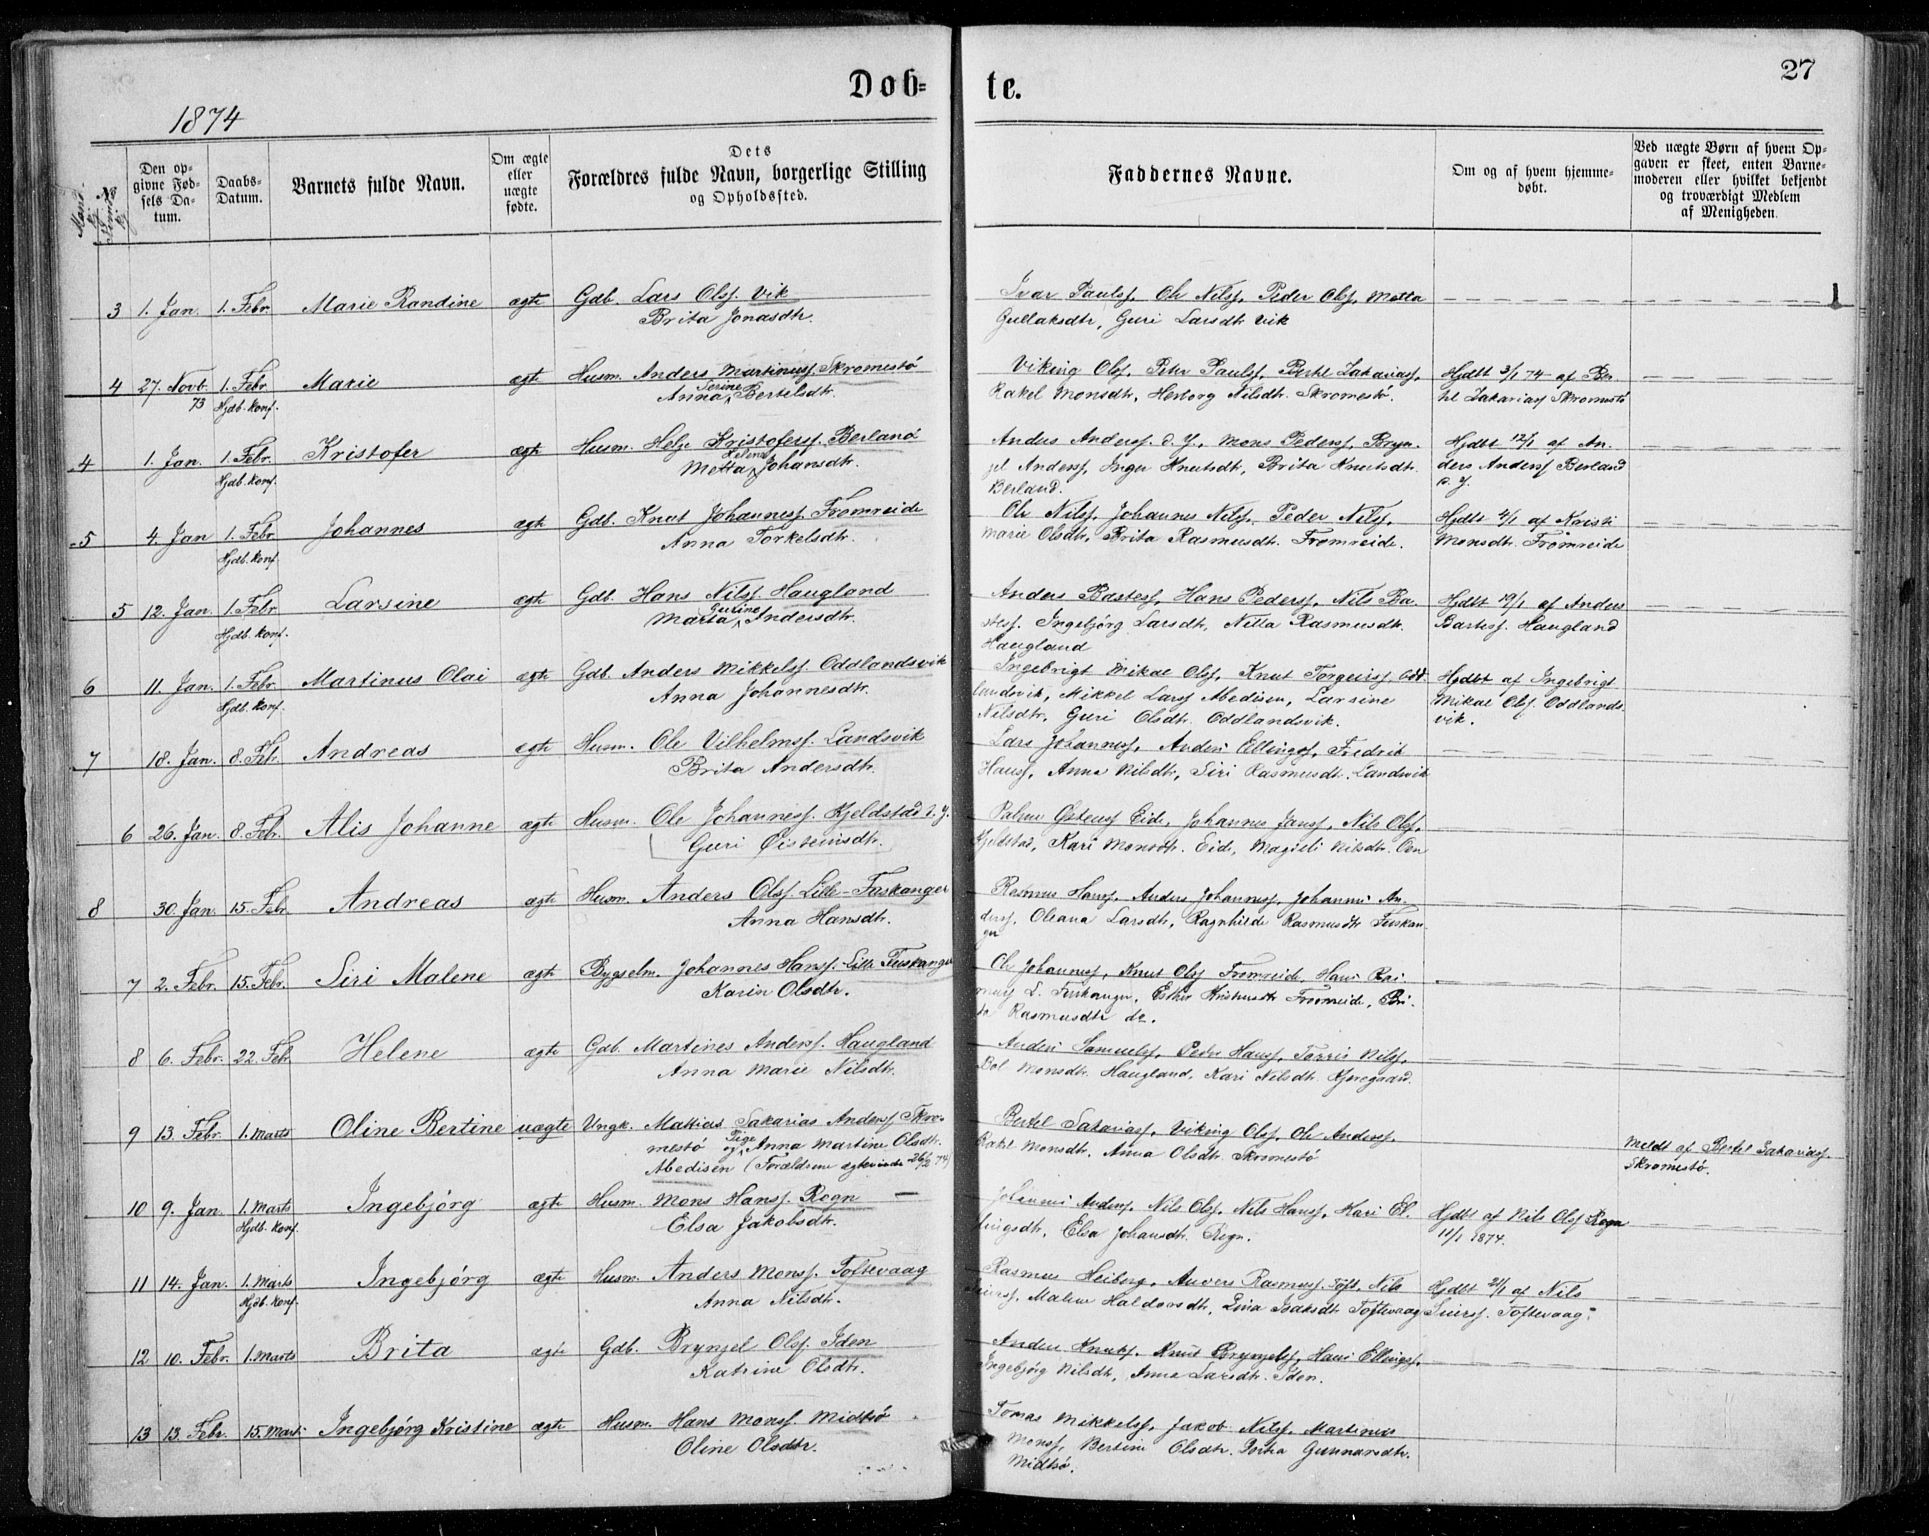 27
Døb=
te.
1874
Den op-
givne Fød-
sels Da-
tum.
Daabs-
Datum.
Barnets fulde Navn.
Om ægte
eller
uægte
fødte.
Dets
Forældres fulde Navn, borgerlige Stilling
og Opholdssted.
Faddernes Navne.
Om og af hvem hjemme-
døbt.
Ved uægte Børn af hvem Op-
gaven er skeet, enten Barne-
moderen eller hvilket bekjendt
og troværdigt Medlem
af Menigheden.
3 1. Jan. 1. Febr. Marie Randine ægte Gdb. Lars Olsf. Vik
Brita Jonasdtr.
Ivar Paulsf. Ole Nilsf. Peder Olsf. Metta
Gullaksdtr, Guri Larsdtr Vik
4 27. Novb. 1. Febr. Marie ægte Husm. Anders Martinusf. Skromestø
73 Hjdb. Konf. Anna Serine Bertelsdtr.
Viking Olsf. Peter Paulsf. Bertel Zakariasf.
Rakel Monsdtr, Herborg Nilsdtr. Skromestø.
Hjdbt 3/1 74 af Ber
tel Zakariasf Skromestø
4 1. Jan. 1. Febr. Kristofer ægte Husm. Helje Kristofersf. Berland
Hjdb. Konf. Metta Helena Johansdtr.
Anders Andersf. d. y., Mons Pedersf, Bryn-
jel Andersf, Inger Knutsdtr, Brita Knutsdtr.
Berland.
Hjdbt 12/1 af An-
ders Andersf Berland
d. y.
5 4. Jan 1. Febr. Johannes ægte Gdb. Knut Johannesf. Fromreide
Hjdb. Konf. Anna Torkelsdtr.
Ole Nilsf, Johannes Nilsf, Peder Nilsf,
Marie Olsdtr, Brita Rasmusdtr. Fromreide.
Hjdbt 4/1 af Kristi
Monsdtr. Fromreide
5 12. Jan. 1. Febr. Larsine ægte Gdb. Hans Nilsf. Haugland
Hjdb. Konf. Marta Gurine Andersdtr.
Anders Bastesf, Hans Pedersf, Nils Ba-
stesf. Ingebjørg Larsdtr, Netta Rasmusdtr.
Haugland
Hjdbt 19/1 af Anders
Bastesf. Haugland
6 11. Jan. 1. Febr. Martinus Olai ægte Gdb. Anders Mikkelsf. Oddlandsvik
Hjdb. Konf. Anna Johannesdtr.
Ingebrigt Mikal Olsf, Knut Torgeirsf. Odd-
landsvik, Mikkel Larsf Abedisen, Larsine
Nilsdtr, Guri Olsdtr. Oddlandsvik.
Hjdbt af Ingebrigt
Mikal Olsf. Oddlands
vik.
7 18. Jan. 8. Feb. Andreas ægte Husm. Ole Vilhelmsf. Landsvik
Brita Andersdtr.
Lars Johannesf, Anders Ellingsf, Fredrik
Hansf, Anna Nilsdtr, Siri Rasmusdtr. Landsvik
6 26. Jan. 8. Feb. Alis Johanne ægte Husm. Ole Johannesf. Kjeldstad d. y.
Guri Øisteinsdtr.
Palme Østensf Eide, Johannes Jansf, Nils Olsf,
Kjeldstad, Kari Monsdtr. Eide, Magteli Nilsdtr.
8 30. Jan. 15. Feb Andreas ægte Husm. Anders Olsf. Lille-Foskanger
Anna Hansdtr.
Rasmus Hansf, Anders Johannesf, Johannes An-
dersf. Oleana Larsdtr, Ragnhilde Rasmusdtr Fuskan-
ger
7 2. Febr. 15. Feb. Siri Malene ægte Bygselm. Johannes Hansf. Lille Fuskanger
Karin Olsdtr.
Ole Johannesf, Knut Olsf Fromreide, Hans
L. Fuskanger, Ester Fromreide, Bri-
ta Rasmusdtr do.
8 6. Febr. 22. Feb Helene ægte Gdb. Martines Andersf. Haugland
Anna Marie Nilsdtr.
Anders Samuelsf, Peder Hansf, Torris Nilsf,
Bol Monsdtr. Haugland, Kari Nilsdtr. Kjøregaard.
9 13. Febr. 1. Marts Oline Bertine uægte Ungk. Mattias Sakarias Andersf Skro-
mestø og Pige Anna Martine Olsdtr.
Abedisen (Forældrene ægteviede 26/2 74)
Bertel Sakariasf, Viking Olsf, Ole Andersf,
Rakel Monsdtr, Anna Olsdtr Skromestø
Meldt af Bertel Sakariasf.
Skromestø.
10 9. Jan. 1. Marts Ingebjørg ægte Husm. Mons Hansf. Rogn
Hjdb. Konf. Elsa Jakobsdtr.
Johannes Andersf, Nils Olsf, Nils Hansf, Kari El-
lingsdtr, Elsa Johansdtr. Rogn.
Hjdbt af Nils Olsf Rogn
11/1 1874.
11 14. Jan. 1. Marts Ingebjørg ægte Husm. Anders Monsf. Toftevaag
Hjdb. Konf. Anna Nilsdtr.
Rasmus Heiberg, Anders Rasmusf. Toft, Nils
Seiersf. Malene Haldorsdtr, Lina Isaksdtr Toftevaag
Hjdbt 21/1 af Nils
Seiersf. Toftevaag.
12 10. Febr. 1. Marts Brita ægte Gdb. Brynjel Olsf. Iden
Katrine Olsdtr.
Anders Knutsf. Knut Brynjelsf, Hans Ellingsf.
Ingebjørg Nilsdtr, Anna Larsdtr. Iden.
13 13. Febr. 15. Mart. Ingebjørg Kristine ægte Husm. Hans Monsf Midtsø
Oline Olsdtr.
Tomas Mikkelsf, Jakob Nilsf, Martinus
Monsf, Bertine Olsdtr. Dortea Gunnarsdtr.
Midtsø.